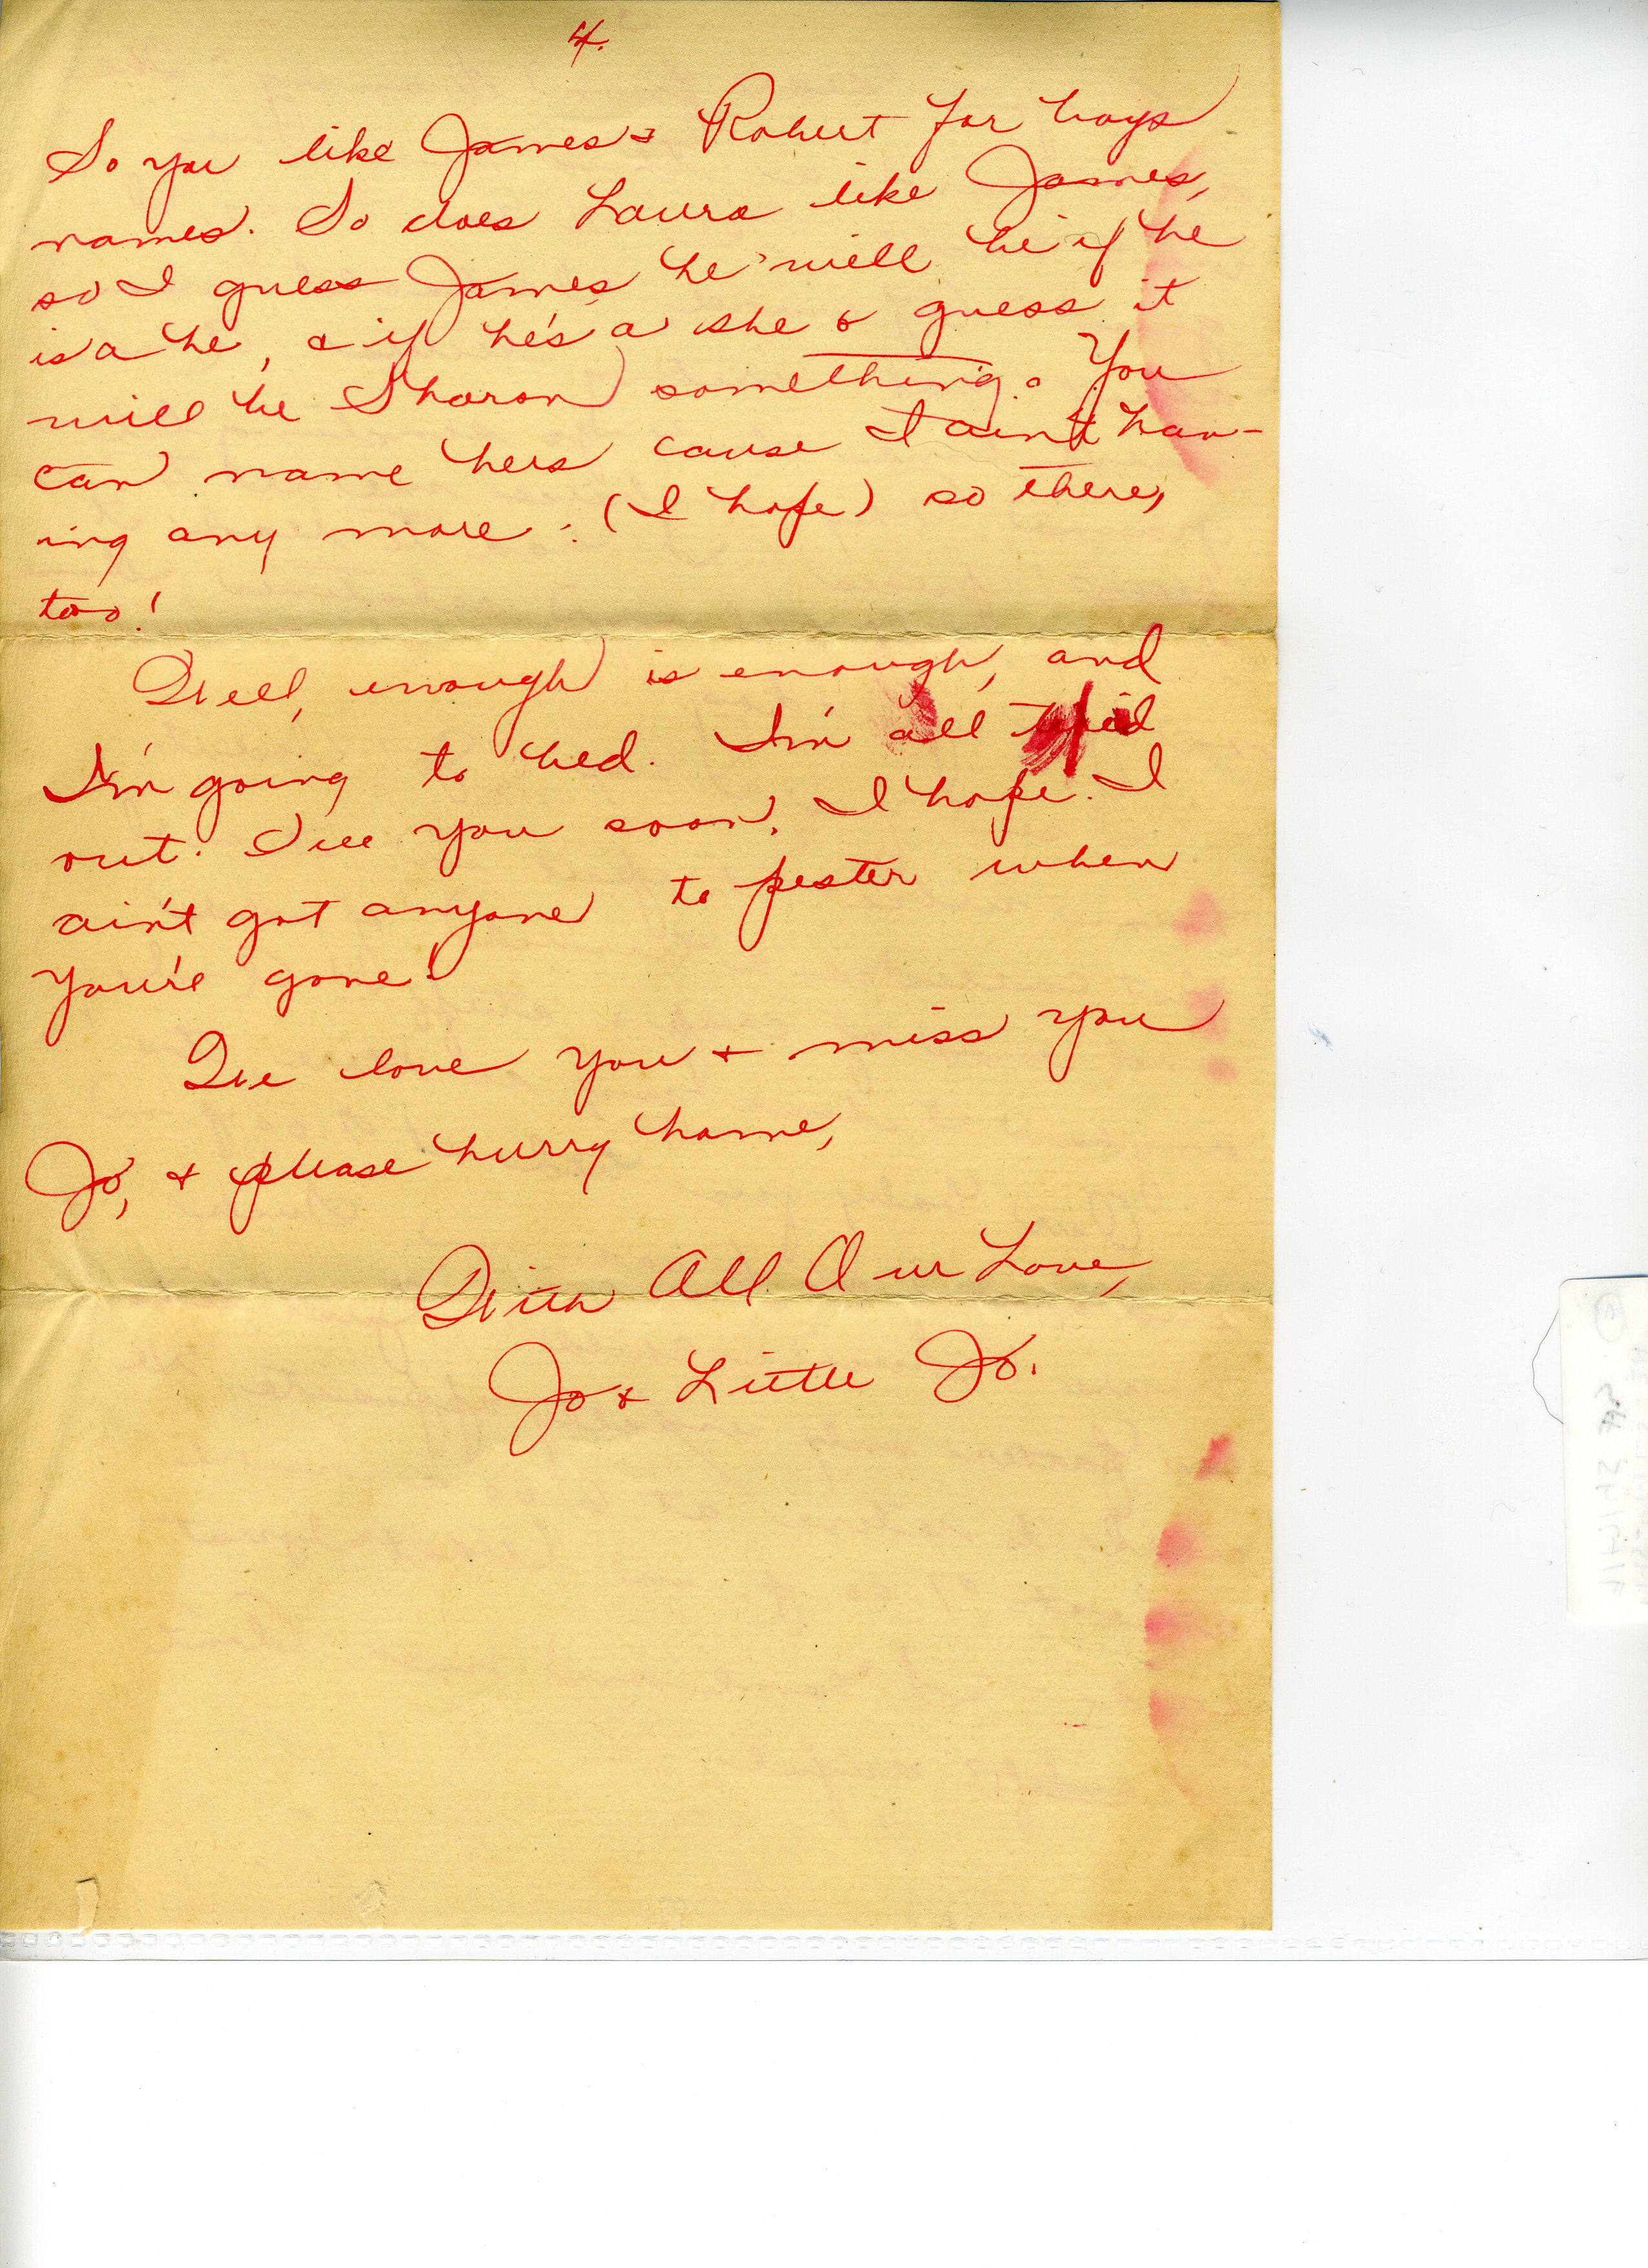 4.
So you like James & Robert for boys
names. So does Laura like James,
so I guess James he will be if he
is a he, & if he's a she I guess it
will be Sharon something. You
can name hers cause I ain't hav-
ing any more. (I hope) so there,
too!
Well, enough is enough, and
I'm going to bed. I'm all tired
out. See you soon, I hope. I
ain't got anyone to pester when
you're gone!
We love you & miss you
Jo, & please hurry home,
With All Our Love,
Jo & Little Jo.